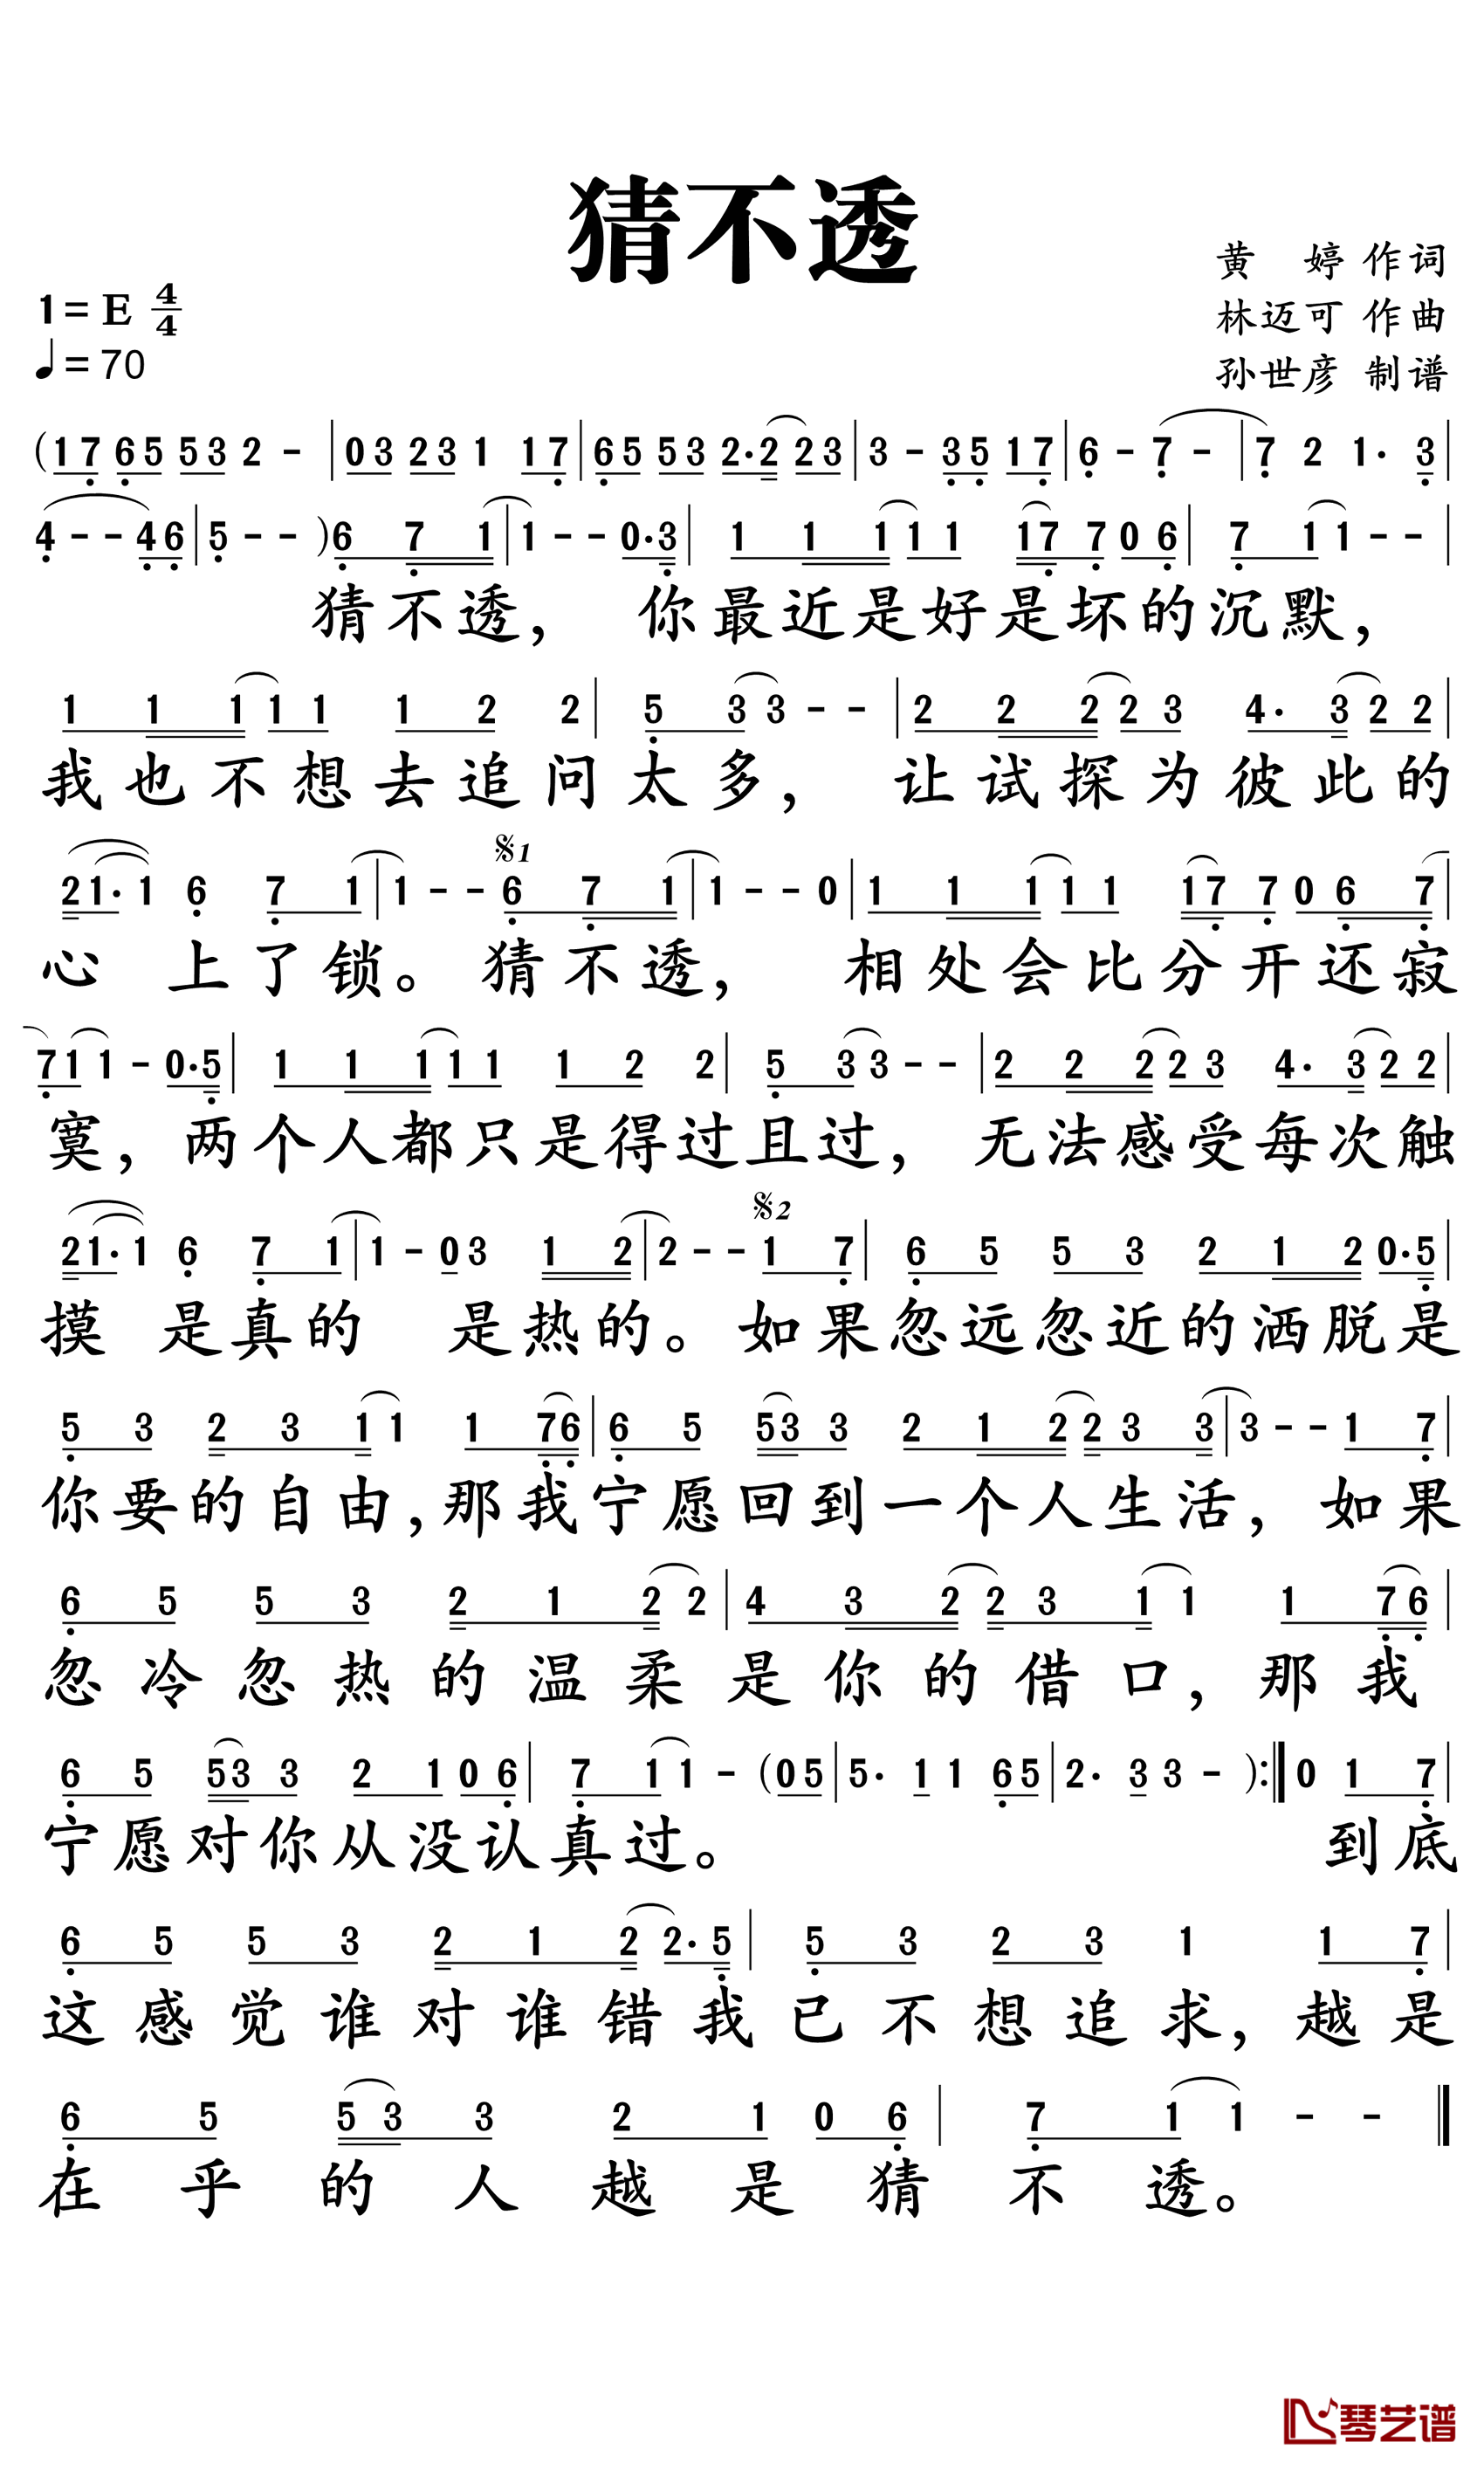 猜不透
黄 婷 作词
1= E 4/4
林迈可 作曲
♩= 70
孙世彦 制谱
(17 65 53 2 - | 03 23 1 17 | 65 53 2·2 23 | 3 - 35 17 | 6 - 7 - | 7 2 1· 3 |
4 - - 46 | 5 - - )6 7 1 | 1 - - 0·3 | 1 1 1 1 1 17 7 0 6 | 7 1 1 - - |
猜不透, 你最近是好是坏的沉默,
1 1 1 1 1 1 2 2 | 5 3 3 - - | 2 2 2 2 3 4· 3 2 2 |
我也不想去追问太多, 让试探为彼此的
𝄋1
21· 1 6 7 1 | 1 - - 6 7 1 | 1 - - 0 | 1 1 1 1 1 17 7 0 6 7 |
心 上了锁。猜不透, 相处会比分开还寂
7 1 1 - 0·5 | 1 1 1 1 1 1 2 2 | 5 3 3 - - | 2 2 2 2 3 4· 3 2 2 |
寞, 两个人都只是得过且过, 无法感受每次触
𝄋2
21· 1 6 7 1 | 1 - 0 3 1 2 | 2 - - 1 7 | 6 5 5 3 2 1 2 0·5 |
摸 是真的 是热的。如果忽远忽近的洒脱是
5 3 2 3 1 1 1 76 | 6 5 53 3 2 1 2 2 3 3 | 3 - - 1 7 |
你要的自由,那我宁愿回到一个人生活, 如果
6 5 5 3 2 1 2 2 | 4 3 2 2 3 1 1 1 7 6 |
忽冷忽热的温柔是你的借口, 那我
6 5 53 3 2 1 0 6 | 7 1 1 - (05 | 5· 1 1 65 | 2· 3 3 - ):‖ 0 1 7 |
宁愿对你从没认真过。 到底
6 5 5 3 2 1 2 2· 5 | 5 3 2 3 1 1 7 |
这感觉谁对谁错我已不想追求, 越是
6 5 5 3 3 2 1 0 6 | 7 1 1 - - ‖
在乎的人越是猜不透。
琴艺谱